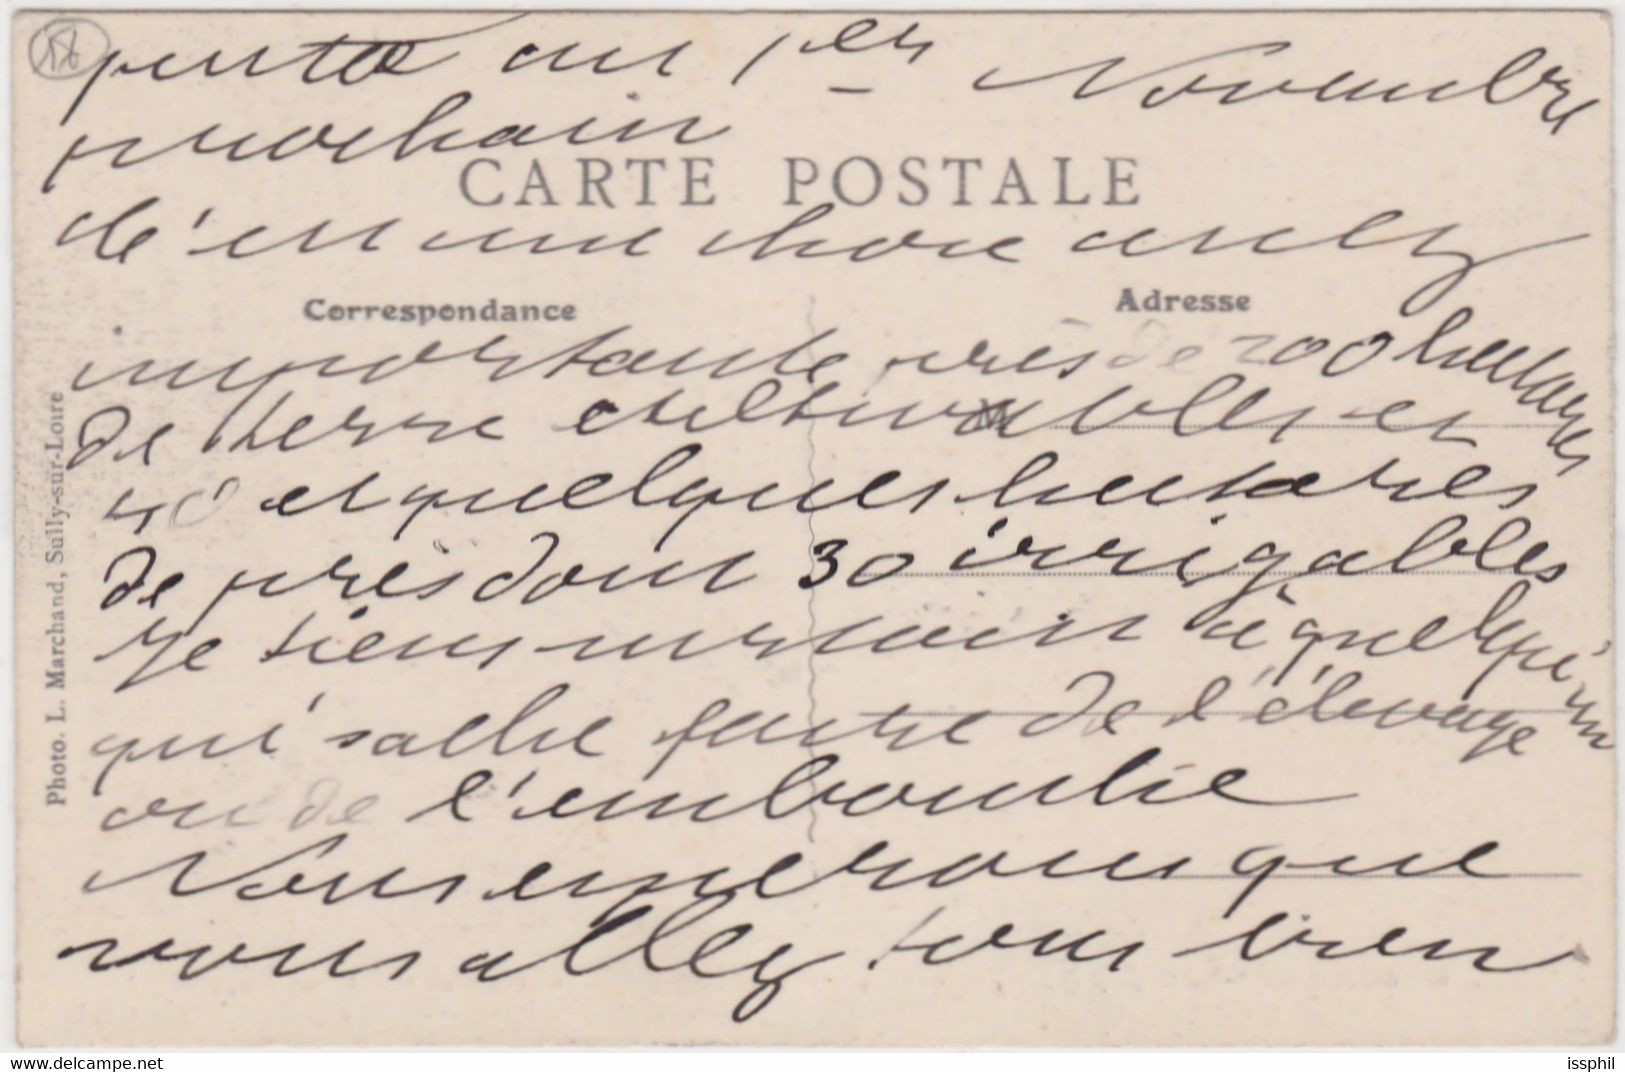 au 1er Novembre
prochain
CARTE POSTALE
c'en une chose assez
Correspondance
Adresse
importante près de 200 hectares
de terre cultivables et
40 et quelques hectares
de près dont 30 irrigables
je tiens à quelqu'un
qui sache faire de l'élevage
ou de l'embouche
Nous espérons que
vous allez tous bien
Photo. L. Marchand, Sully-sur-Loire
www.delcampe.net
issphil